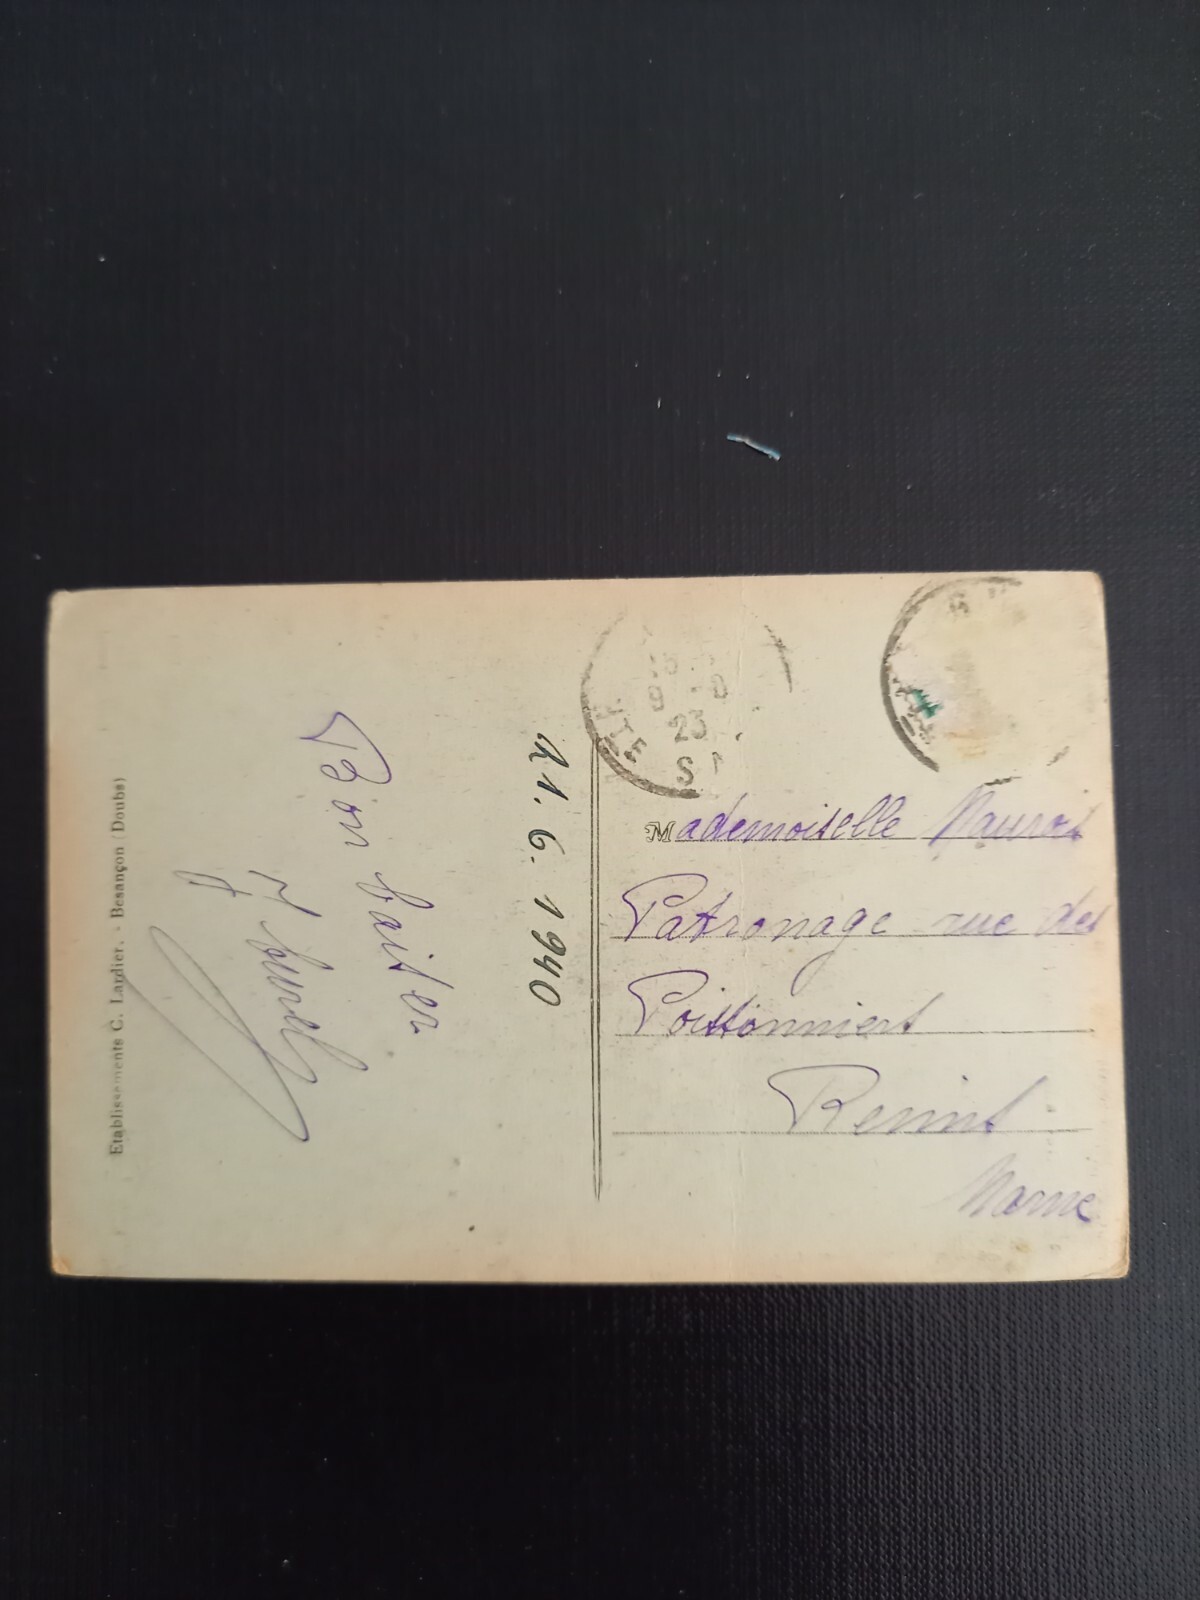 Etablissements C. Lardier. - Besançon (Doubs)
Bon baiser
21. 6. 1940
23
Mademoiselle
Patronage rue des
Poissonniers
Reims
Marne